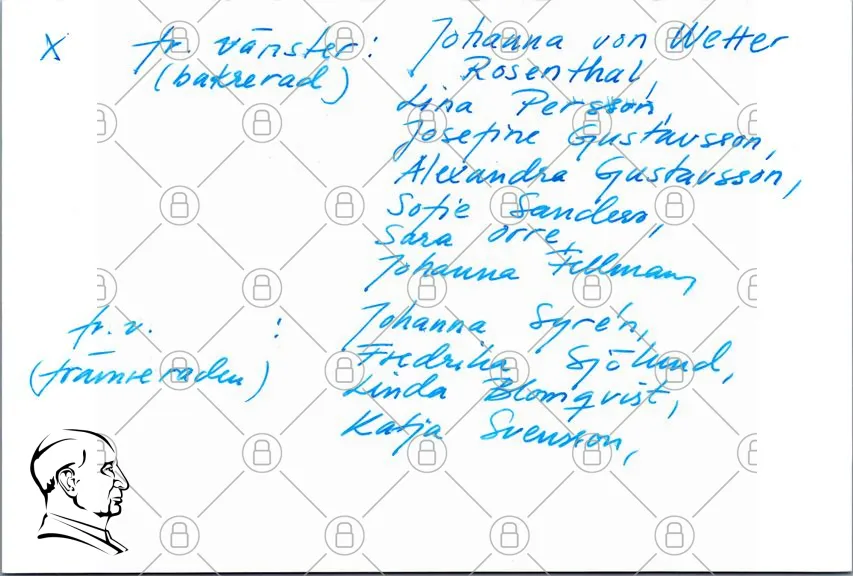 X fr. vänster: Johanna von Wetter
(bakre rad) Rosenthal,
Lina Persson,
Josefine Gustavsson,
Alexandra Gustavsson,
Sofie Sanders,
Sara Orre,
Johanna Fellman,
fr. v. : Johanna Syrén,
(främre raden) Fredrika Sjölund,
Linda Blomqvist,
Katja Svensson,